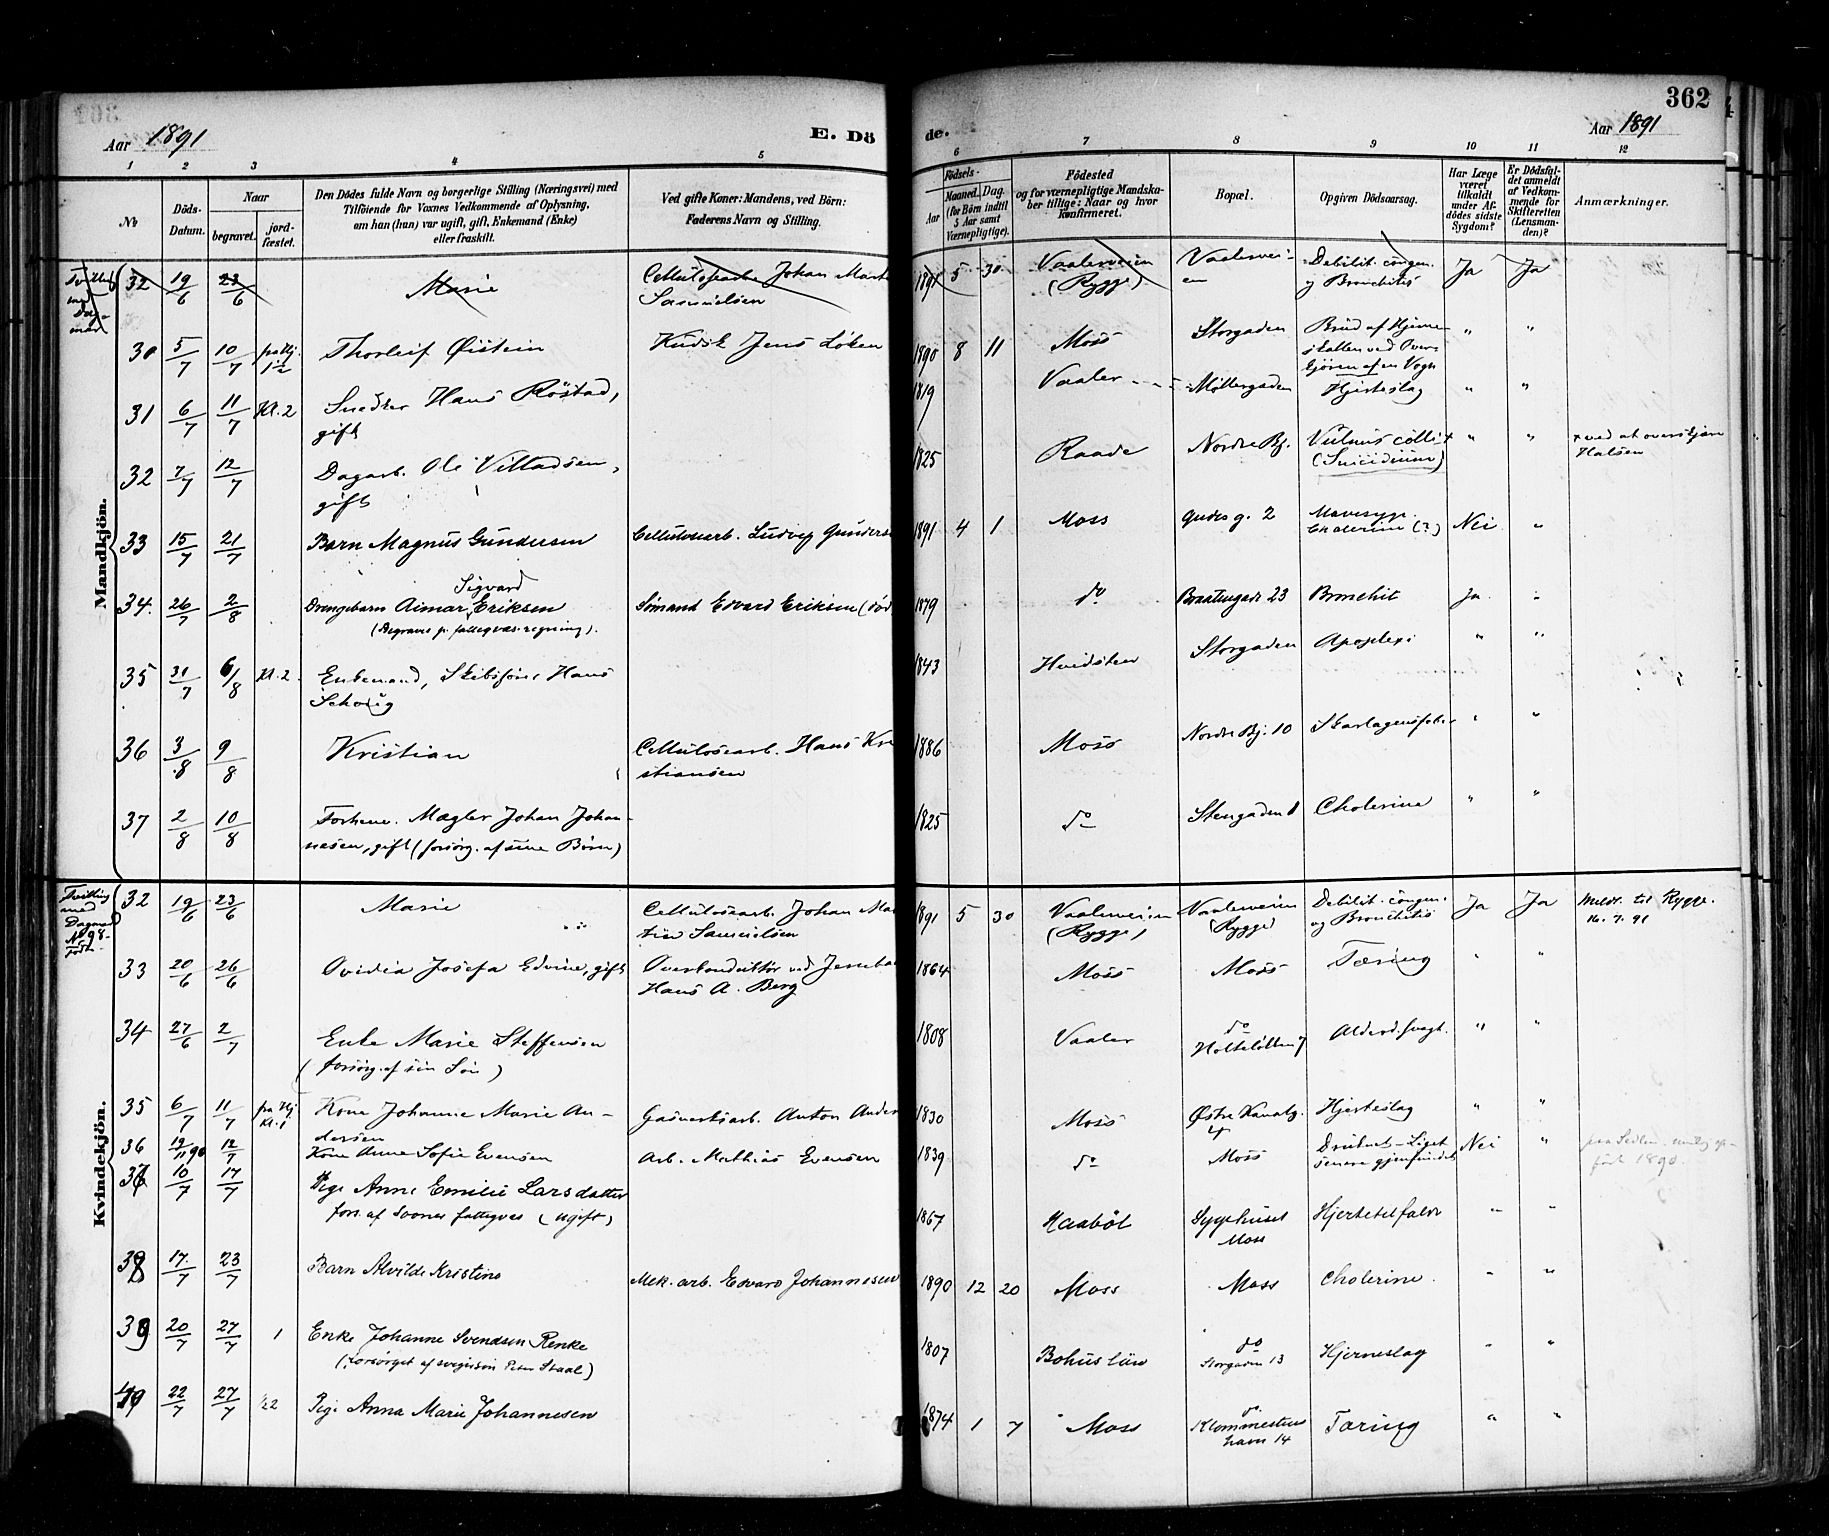 362
Aar 1891
E. Dö
de.
Aar 1891
1 2 3 4 5
6 7 8 9 10 11 12
No
Döds-
Datum.
Naar
begravet.
jord-
fæstet.
Den Dödes fulde Navn og borgerlige Stilling (Næringsvei) med
Tilföiende for Voxnes Vedkommende af Oplysning,
om han (hun) var ugift, gift, Enkemand (Enke)
eller fraskilt.
Ved gifte Koner: Mandens, ved Börn:
Faderens Navn og Stilling.
Födsels-
Aar
Maaned. Dag.
(for Börn indtil
5 Aar samt
Værnepligtige).
Födested
og for værnepligtige Mandska-
ber tillige: Naar og hvor
konfirmeret.
Bopæl.
Opgiven Dödsaarsag.
Har Læge
været
tilkaldt
under Af-
dödes sidste
Sygdom?
Er Dödsfal-
det anmeldt
af Vedkom-
mende for
Skifteretten
(Lensman-
den)?
Anmærkninger.
Mandkjön.
32 19/6 23/6 Marie Johan Samuelsen 1891 5 30 Vaalerveien (Rygge) Vaalervei-en Debilit. congen. og Bronchitis Ja Ja
30 5/7 10/7 Thorleif Øistein Kudsk Jens Løken 1890 8 11 Moss Storgaden Brud af Hjerne-
skallen ved Over-
kjøren af en Vogn " "
31 6/7 11/7 Kl. 2 Snedker Hans Röstad, 1819 Vaaler Møllergaden Hjerteslag " "
gift
32 7/7 12/7 Dagarb. Ole Villadsen, 1825 Raade Nordre Bj. Vulnus colli + " " + ved at overskjære
gift (Suicidium) Halsen
33 15/7 21/7 Barn Magnus Gundersen Cellulosearb. Ludvig Gunderse 1891 4 1 Moss Gudes g. 2 Mavesyge. Nei "
Cholerine (?)
34. 26/7 2/8 Drengebarn Aimar Sigvard Eriksen Sømand Edvard Eriksen (død 1879 do Braatengade 23 Bronchit Ja "
(Begraves p. fattigvæs. regning).
35 31/7 6/8 Kl. 2. Enkemand, Skibsfører Hans 1843 Hvidsten Storgaden Apoplexi " "
36 3/8 9/8 Kristian Cellulosearb. Hans Kri 1886 Moss Nordre Bj. 10 Skarlagensfeber " "
stiansen
37 2/8 10/8 Forhenv. Mægler Johan Johan- 1825 do Stengaden 1 Cholerine " "
nesen, gift (forsørg. af sine Børn)
Kvindekjön.
Tvilling
med
Dagmar
No 98
født
32 19/6 23/6 Marie Cellulosearb. Johan Mar 1891 5 30 Vaalerveien Vaalerveien Debilit. congen. Ja Ja Meldt til Rygge.
tin Samuelsen (Rygge) (Rygge) og Bronchitis 16.7.91
33 20/6 26/6 Ovidia Josefa Edvine, gift Overkonduktør ved Jernba 1864 Moss Moss Tæring " "
Hans A. Berg
34 27/6 2/7 Enke Marie Steffensen 1808 Vaaler do Alderd.svagh. " "
(forsørg. af sin Søn)
35 6/7 11/7 Kone Johanne Marie An- Gasverksarb. Anton Ander 1830 Moss Østre Kanalg. Hjerteslag " "
dersen 4
36 19/11 90 12/7 Kone Anne Sofie Evensen Arb. Mathias Evensen 1839 do Moss Druknet - Liget Nei "
senere gjenfundet
37 10/7 17/7 Pige Anne Emilie Larsdatter 1867 Haabøl Sygehuset Hjertefeil " "
fors. af Soner fattigvæs (ugift) Moss
38 17/7 23/7 Barn Alvilde Kristine Mek. arb. Edvard Johannesen 1890 12 20 Moss Moss Cholerine " "
39 20/7 27/7 1 Enke Johanne Svendsen Renke 1807 Bohus län do Hjerneslag " "
(forsørget af svigersøn Peter Staal) Storgaden 13
40 22/7 27/7 Pige Anna Marie Johannesen 1874 1 7 Moss do Tæring " "
havn 14